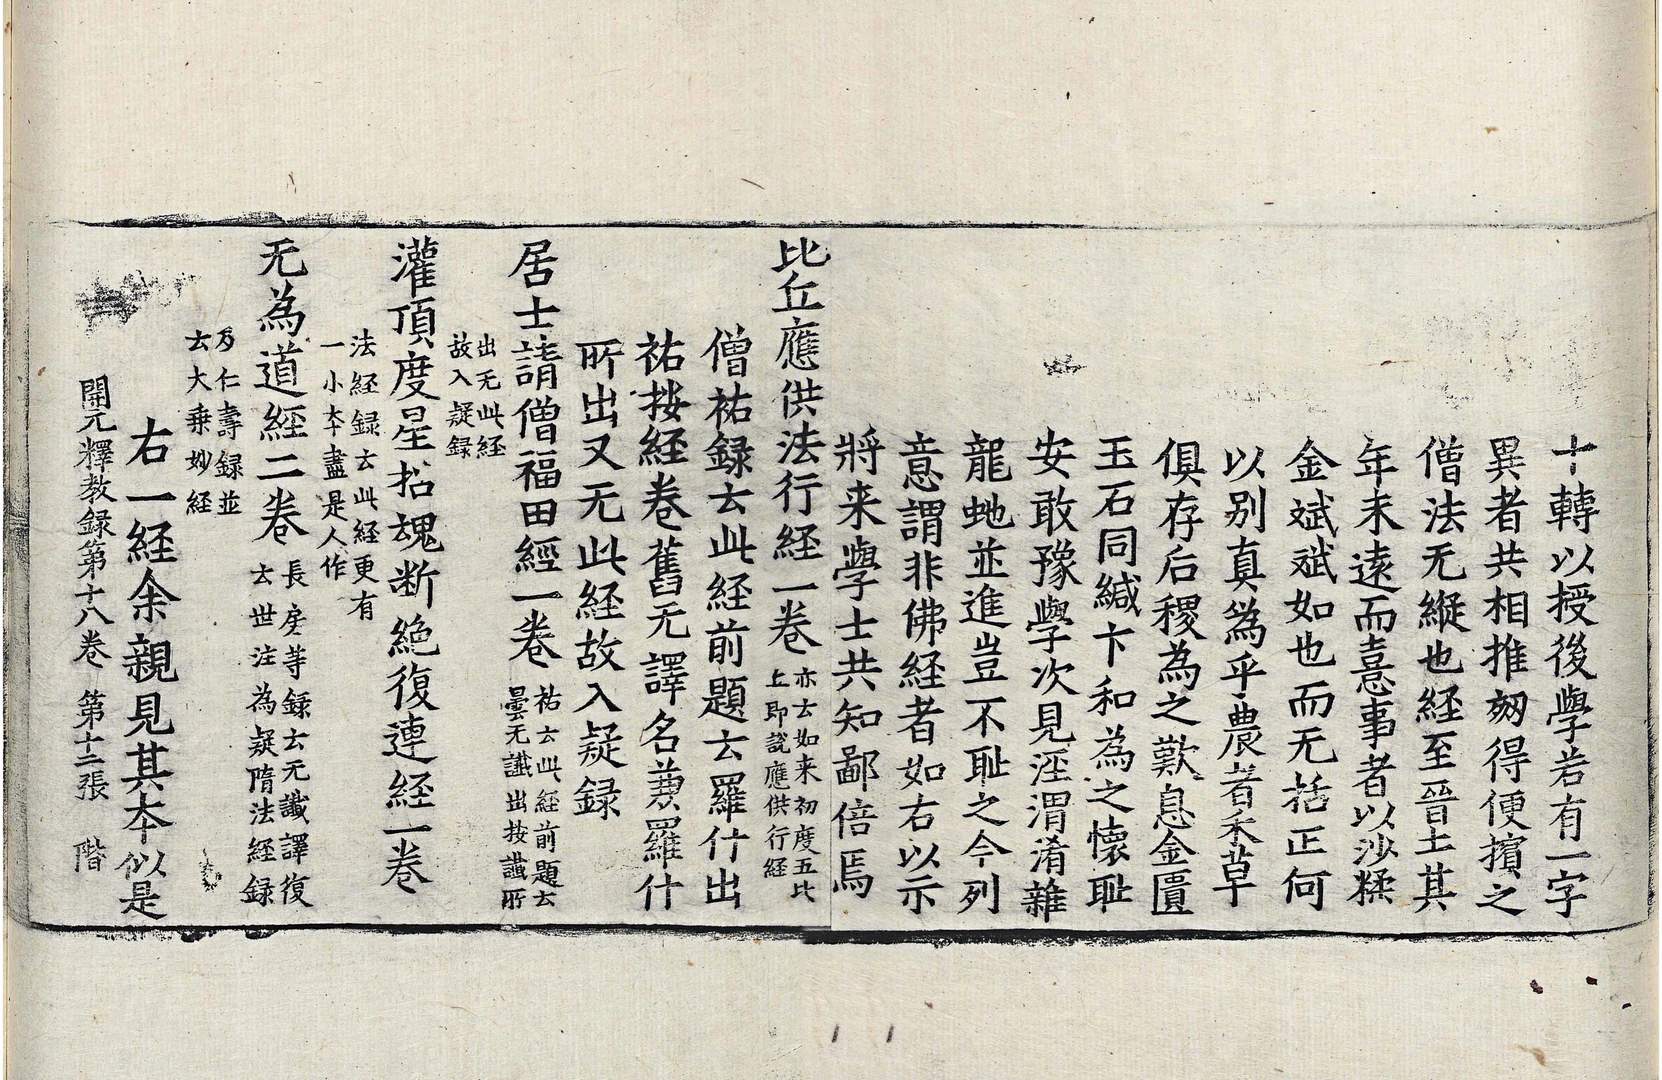 十轉以授後學若有一字
異者共相推挍得便擯之
僧法无縱也経至晉土其
年未遠而憙事者以沙糅
金斌斌如也而无括正何
以別真為乎農者禾草
俱存后稷為之歎息金匱
玉石同緘卞和為之懷恥
安敢豫學次見涇渭淆雜
龍虵並進豈不恥之今列
意謂非佛経者如右以示
將来學士共知鄙倍焉
比丘應供法行経一卷 亦云如来初度五比
丘即說應供行経
僧祐録云此経前題云羅什出
祐按経卷舊无譯名兼羅什
所出又无此経故入疑録
居士請僧福田經一卷 祐云此経前題云
曇无讖出按讖所
出无此経
故入疑録
灌頂度星招魂断絕復連経一卷
法経録云此経更有
一小本盡是人作
无為道経二卷 長房等録云无讖譯復
云世注為疑隋法経録
及仁壽録並
云大乗妙経
右一経余親見其本似是
開元釋教録第十八卷 第十二張 階